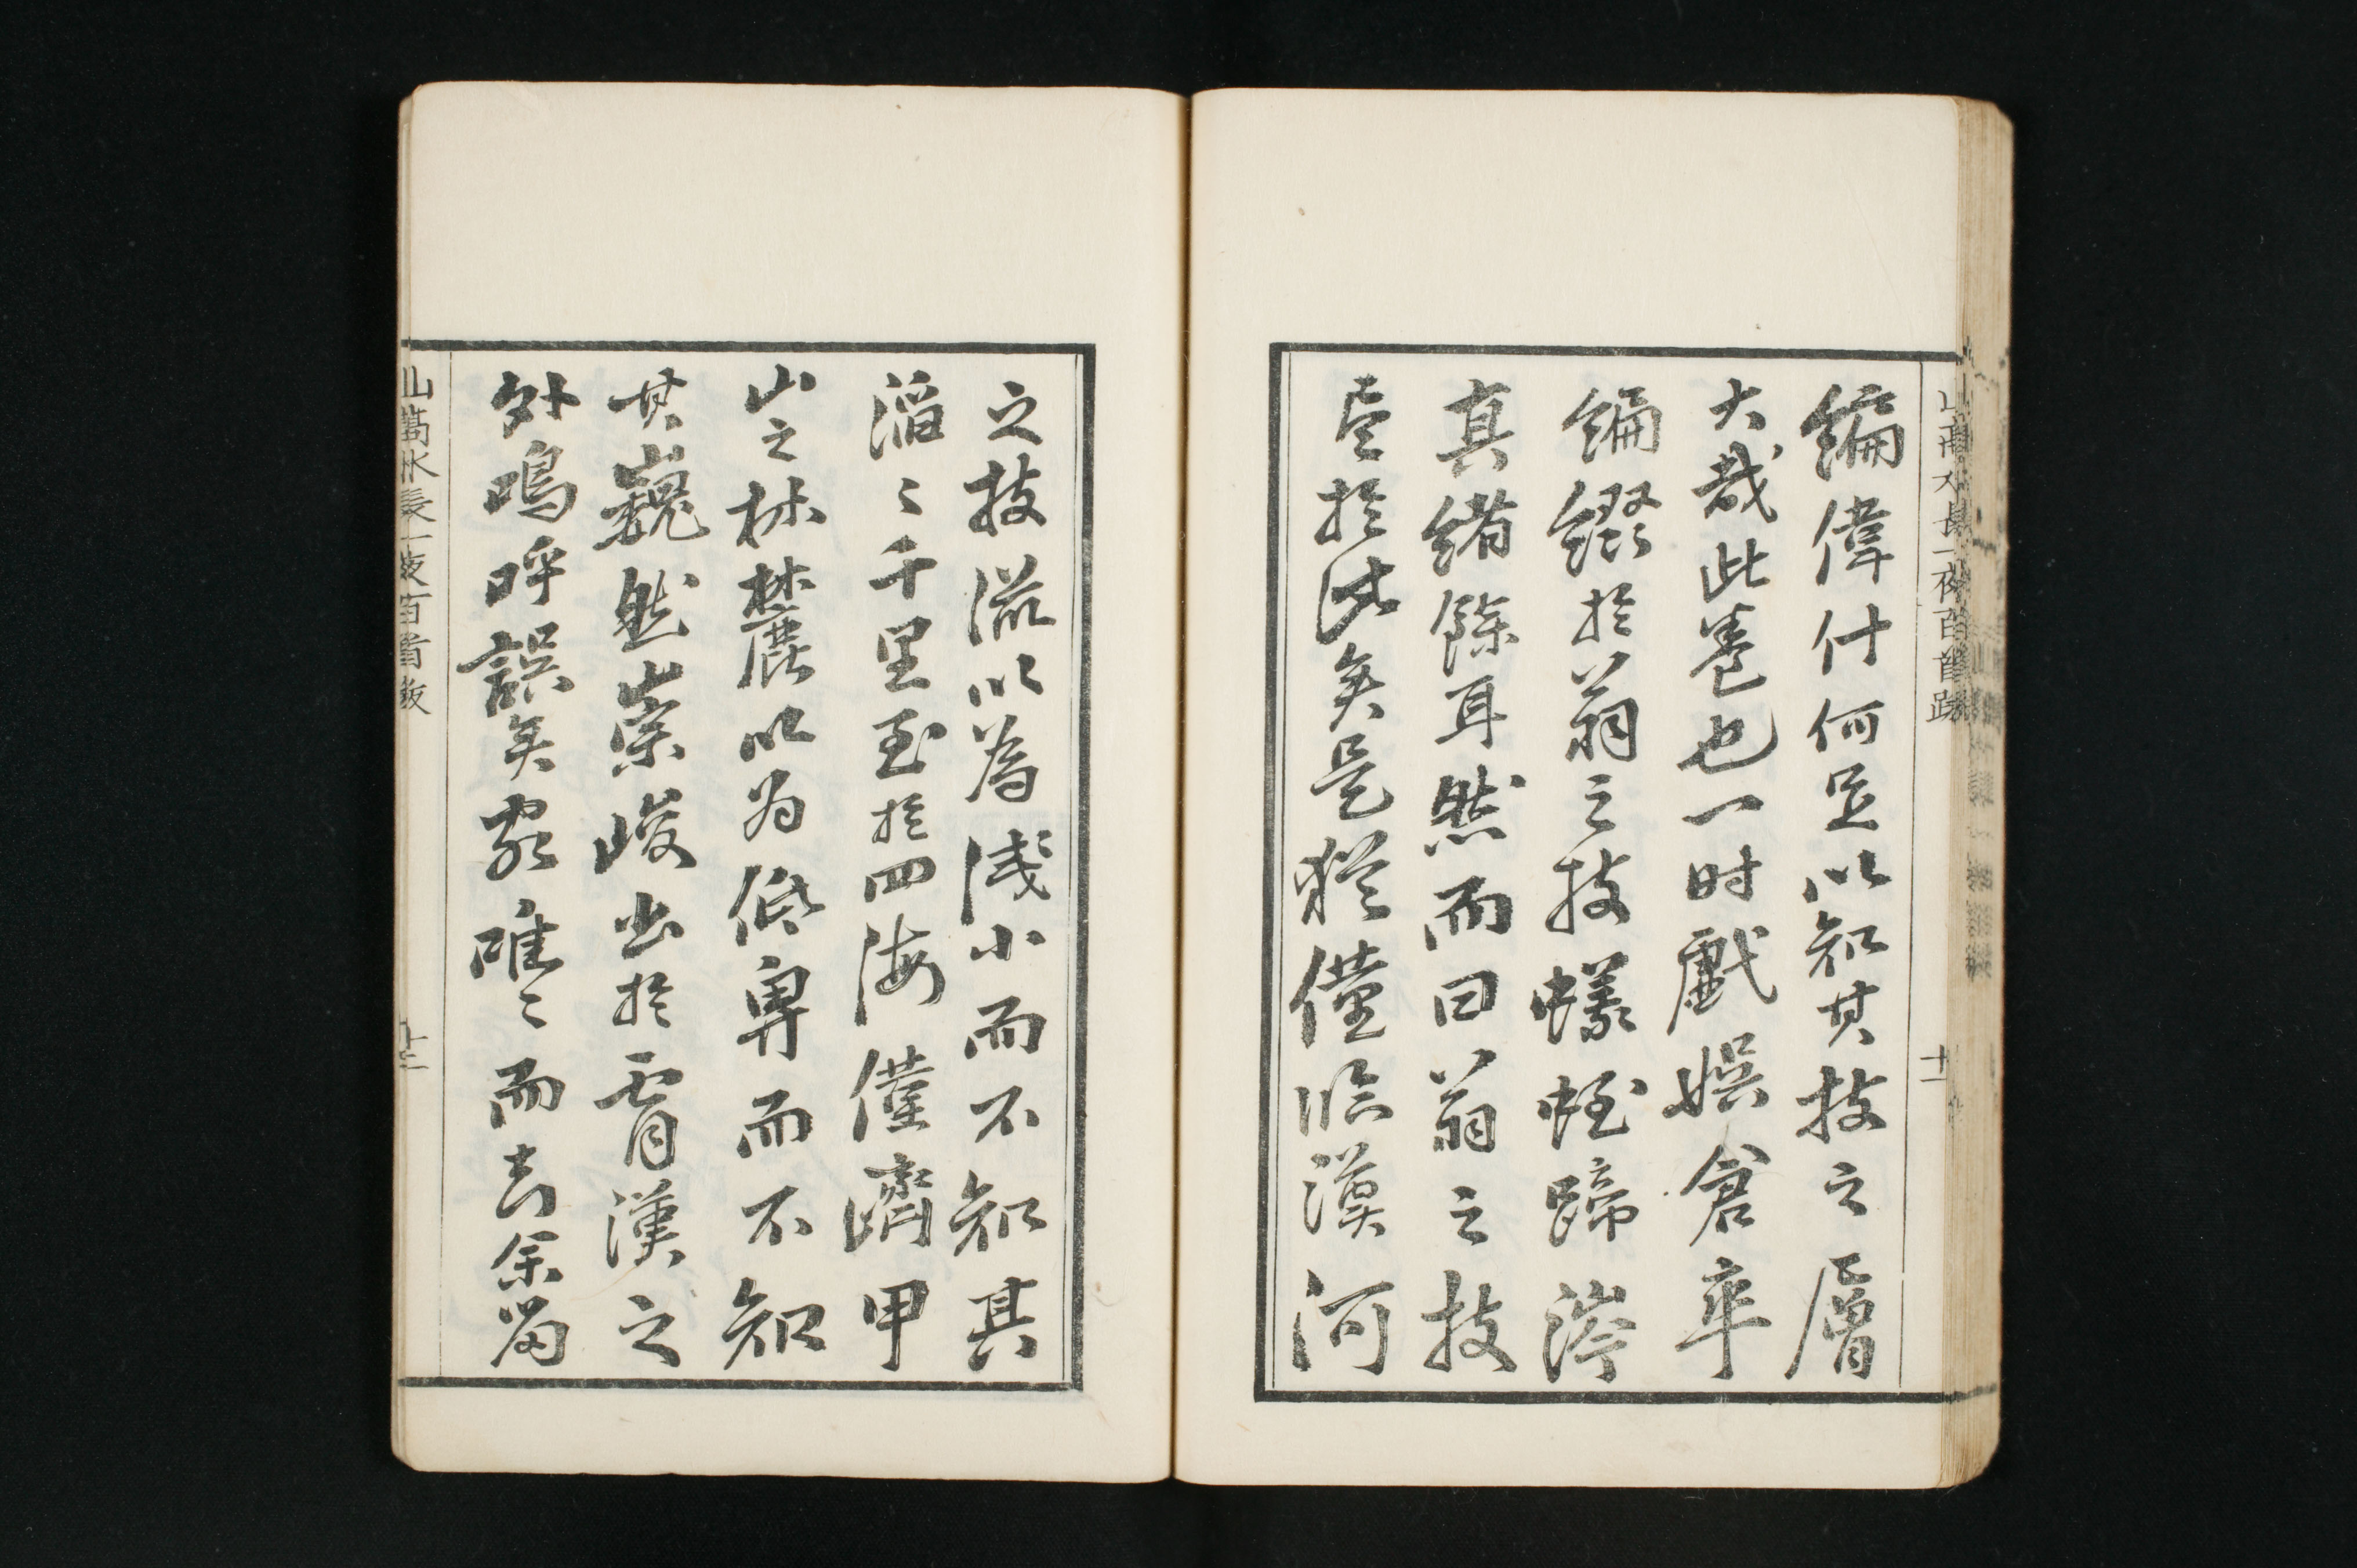 山高水長一夜百首跋
十一
編偉什何足以知其技之層
大哉此卷也一时戲娯倉卒
編綴於翁之技蟻蛭蹄涔
真緒餘耳然而曰翁之技
尽於此矣是猶僅臨漠河
之技流以為淺小而不知其
滔〻千里至於四海僅躋甲
山之林麓以为低卑而不知
其巍然崇峻出於霄漢之
外嗚呼誤矣客唯〻而去余嘗
山高水長一夜百首跋
十二